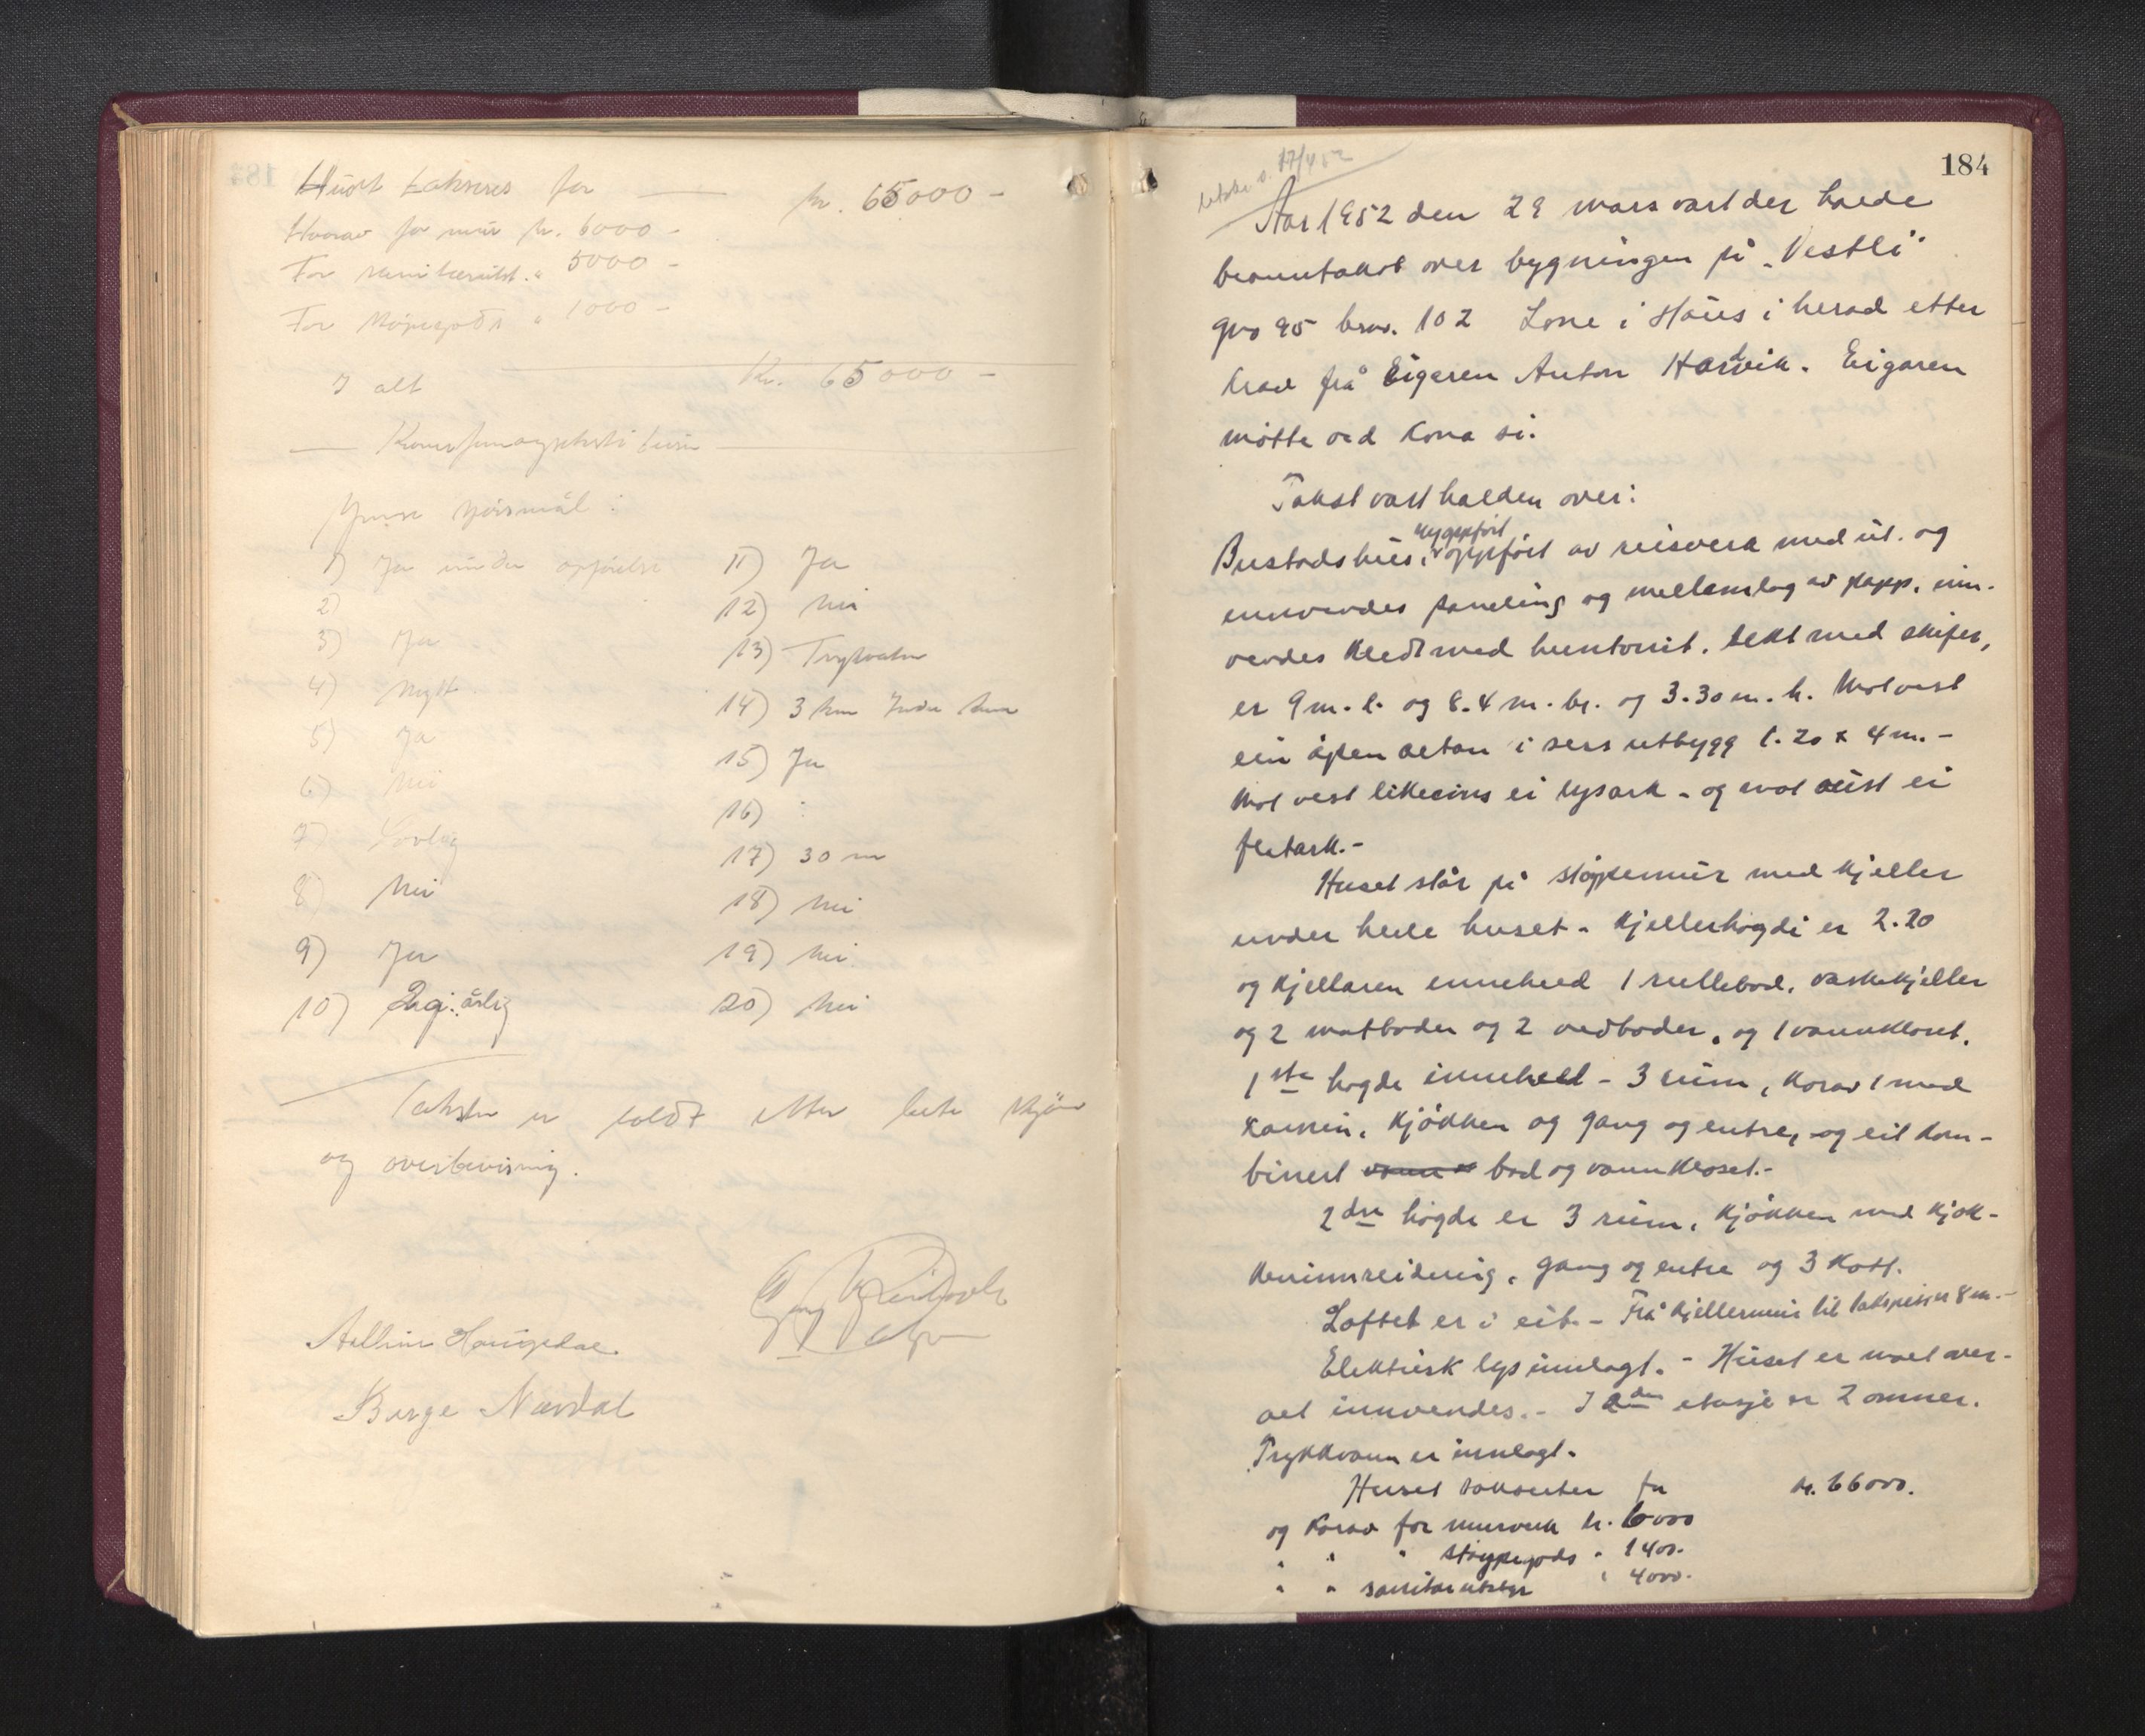 Huset takseres for — kr. 65000 -
Hvorav for mur kr. 6000 -
For sanitærutst. " 5000 -
For støpegods " 1000 -
I alt Kr. 65000 -
Ymse spörsmål:
1) Ja under opførelse
2)
3) Ja
4) Nytt
5) Ja
6) Nei
7) Lovleg
8) Nei
9) Ja
10) Reg. årlig
11) Ja
12) Nei
13) Trykvatn
14) 3 km Indre
15) Ja
16) :
17) 30 m
18) Nei
19) Nei
20) Nei
Taksten er satt etter beste skjøn
og overbevisning.
Haugedal.
Børge Navdal
184
17/4 52
Aar 1952 den 29 mars vart der halde
branntakst over bygningen på "Vestli"
gno 95 brno. 102 Lone i Haus i herad etter
krav frå Eigaren Anton Eigaren
møtte ved kona si.
Takst vart halden over:
nyoppført
Bustadshus, oppført av reisverk med ut- og
innvendes paneling og mellomlag av papp, inn-
vendes kledt med huntonit, tekt med skifer,
er 9 m. l. og 8.4 m. br. og 3.30 m. h. Mot vest
ein åpen altan i sers utbygg 1.20 x 4 m. -
Mot vest likeeins ei lysark - og mot aust ei
flatark.-
Huset står på støypemur med kjeller
under heile huset - Kjellerhøgdi er 2.20
og kjellaren inneheld 1 rullebod, vaskekjeller
og 2 matboder og 2 vedboder, og 1 vannkloset.
1ste høgde inneheld - 3 rum, korav 1 med
kamin, kjøkken og gang og entre, og eit kom-
binert bad og vannkloset.-
2dre høgde er 3 rum, kjøkken med kjøk-
keninnreidning, gang og entre og 3 kott.
Loftet er i eit. - Frå kjellermur til takspiss er 8 m. -
Elektrisk lys innlagt. - Huset er malt over-
alt innvendes. - I 2den etasje er 2 omner.
Trykkvann er innlagt.
Huset takserter for kr. 66000.
og korav for murverk kr. 6000
" " " støypegods " 1400.
" " sanitærutstyr " 4000.